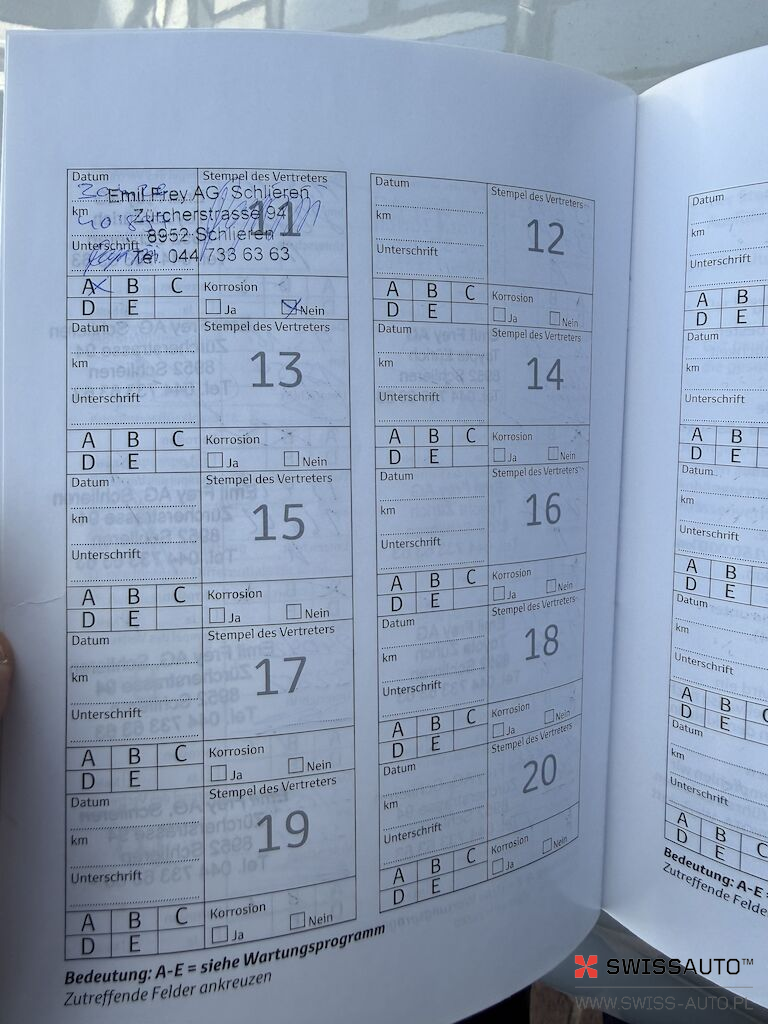 Datum
Stempel des Vertreters
Emil Frey AG, Schlieren
km
Zürcherstrasse 94
11
8952 Schlieren
Unterschrift
Tel. 044 733 63 63
A B C
D E
Korrosion
Ja Nein
Datum
Stempel des Vertreters
km
12
Unterschrift
A B C
D E
Korrosion
Ja Nein
Datum
Stempel des Vertreters
km
13
Unterschrift
A B C
D E
Korrosion
Ja Nein
Datum
Stempel des Vertreters
km
14
Unterschrift
A B C
D E
Korrosion
Ja Nein
Datum
Stempel des Vertreters
km
15
Unterschrift
A B C
D E
Korrosion
Ja Nein
Datum
Stempel des Vertreters
km
16
Unterschrift
A B C
D E
Korrosion
Ja Nein
Datum
Stempel des Vertreters
km
17
Unterschrift
A B C
D E
Korrosion
Ja Nein
Datum
Stempel des Vertreters
km
18
Unterschrift
A B C
D E
Korrosion
Ja Nein
Datum
Stempel des Vertreters
km
19
Unterschrift
A B C
D E
Korrosion
Ja Nein
Datum
Stempel des Vertreters
km
20
Unterschrift
A B C
D E
Korrosion
Ja Nein
Bedeutung: A-E = siehe Wartungsprogramm
Zutreffende Felder ankreuzen
Datum
km
Unterschrift
A B
D E
Datum
km
Unterschrift
A B C
D E
Datum
km
Unterschrift
A B C
D E
Datum
km
Unterschrift
A B C
D E
Datum
km
Unterschrift
A B C
D E
Bedeutung: A-E =
Zutreffende Felder
SWISSAUTO™
WWW.SWISS-AUTO.PL